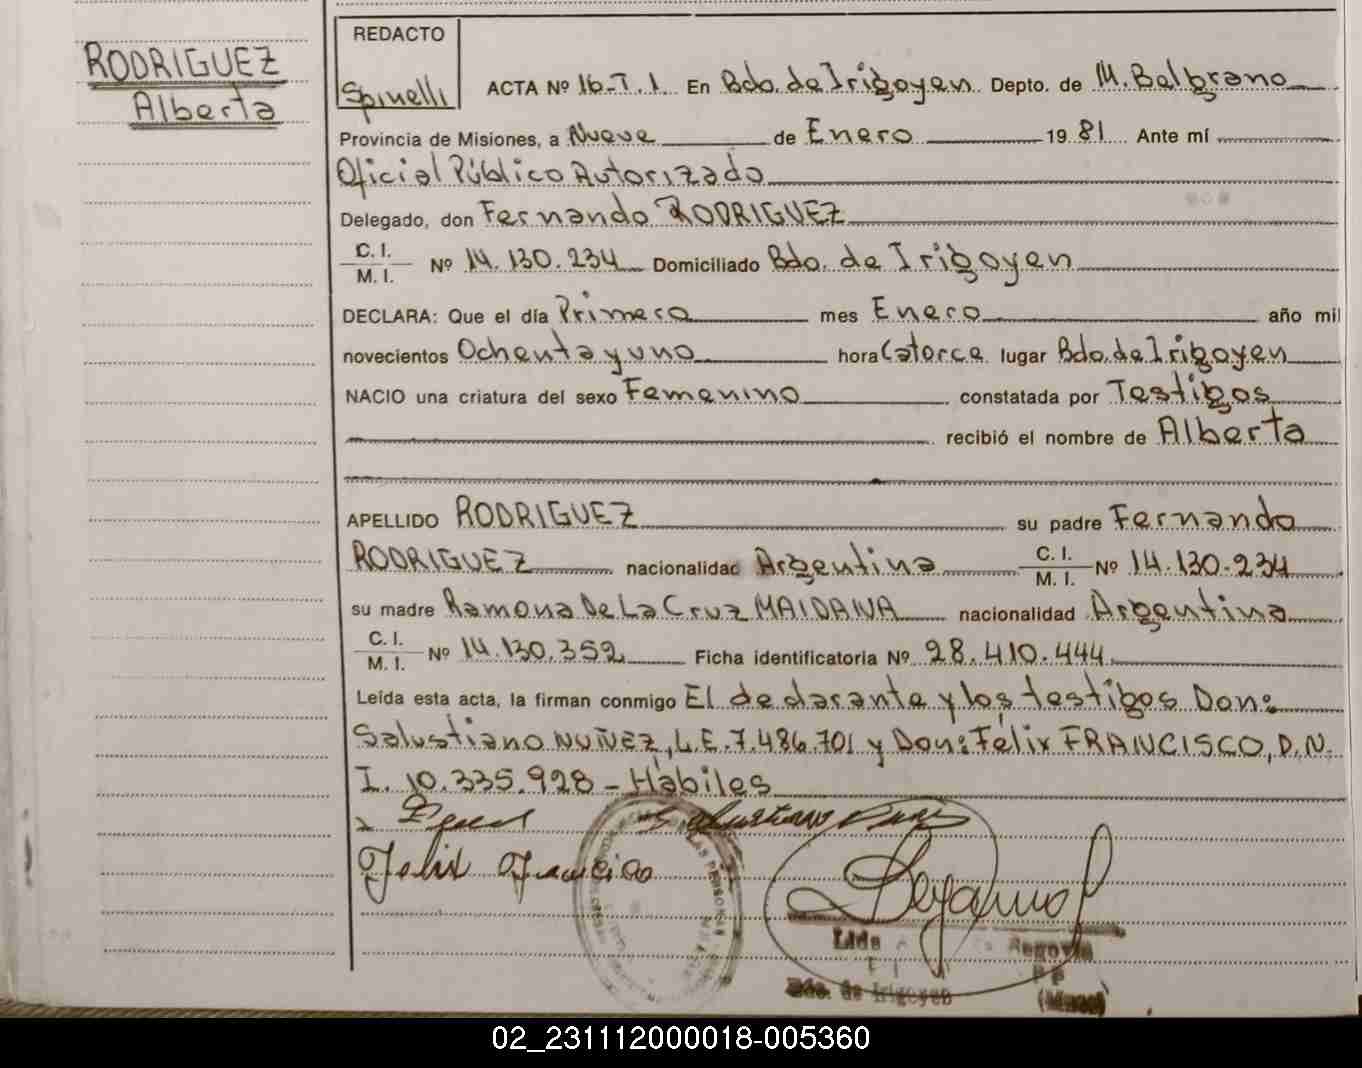 RODRIGUEZ
Alberta
REDACTO
Spinelli
ACTA Nº 16-T.1. En Bdo. de Irigoyen Depto. de M. Belgrano
Provincia de Misiones, a Nueve de Enero 1981 Ante mí
Oficial Público Autorizado
Delegado, don Fernando RODRIGUEZ
C. I.
M. I. Nº 14.130.234 Domiciliado Bdo. de Irigoyen
DECLARA: Que el día Primero mes Enero año mil
novecientos Ochenta y uno hora Catorce lugar Bdo. de Irigoyen
NACIO una criatura del sexo Femenino constatada por Testigos
recibió el nombre de Alberta
APELLIDO RODRIGUEZ su padre Fernando
RODRIGUEZ nacionalidad Argentina C. I. M. I. Nº 14.130.234
su madre Ramona De La Cruz MAIDANA nacionalidad Argentina
C. I.
M. I. Nº 14.130.352 Ficha identificatoria Nº 28.410.444
Leída esta acta, la firman conmigo El declarante y los testigos Don:
Salustiano NUÑEZ, L.E. 7.486.701 y Don: Felix FRANCISCO, D.N.
I. 10.335.928 - Hábiles
Felix Francisco
Bdo. de Irigoyen
02_231112000018-005360